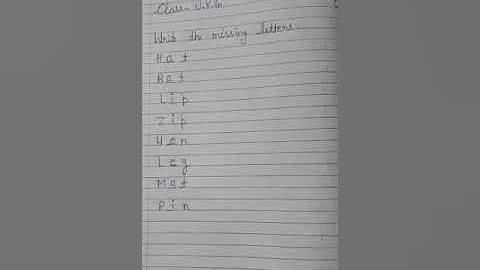 Class- U.K.G.
Write the missing letters.
H a t
B a t
L i p
Z i p
H e n
L e g
M a t
P i n